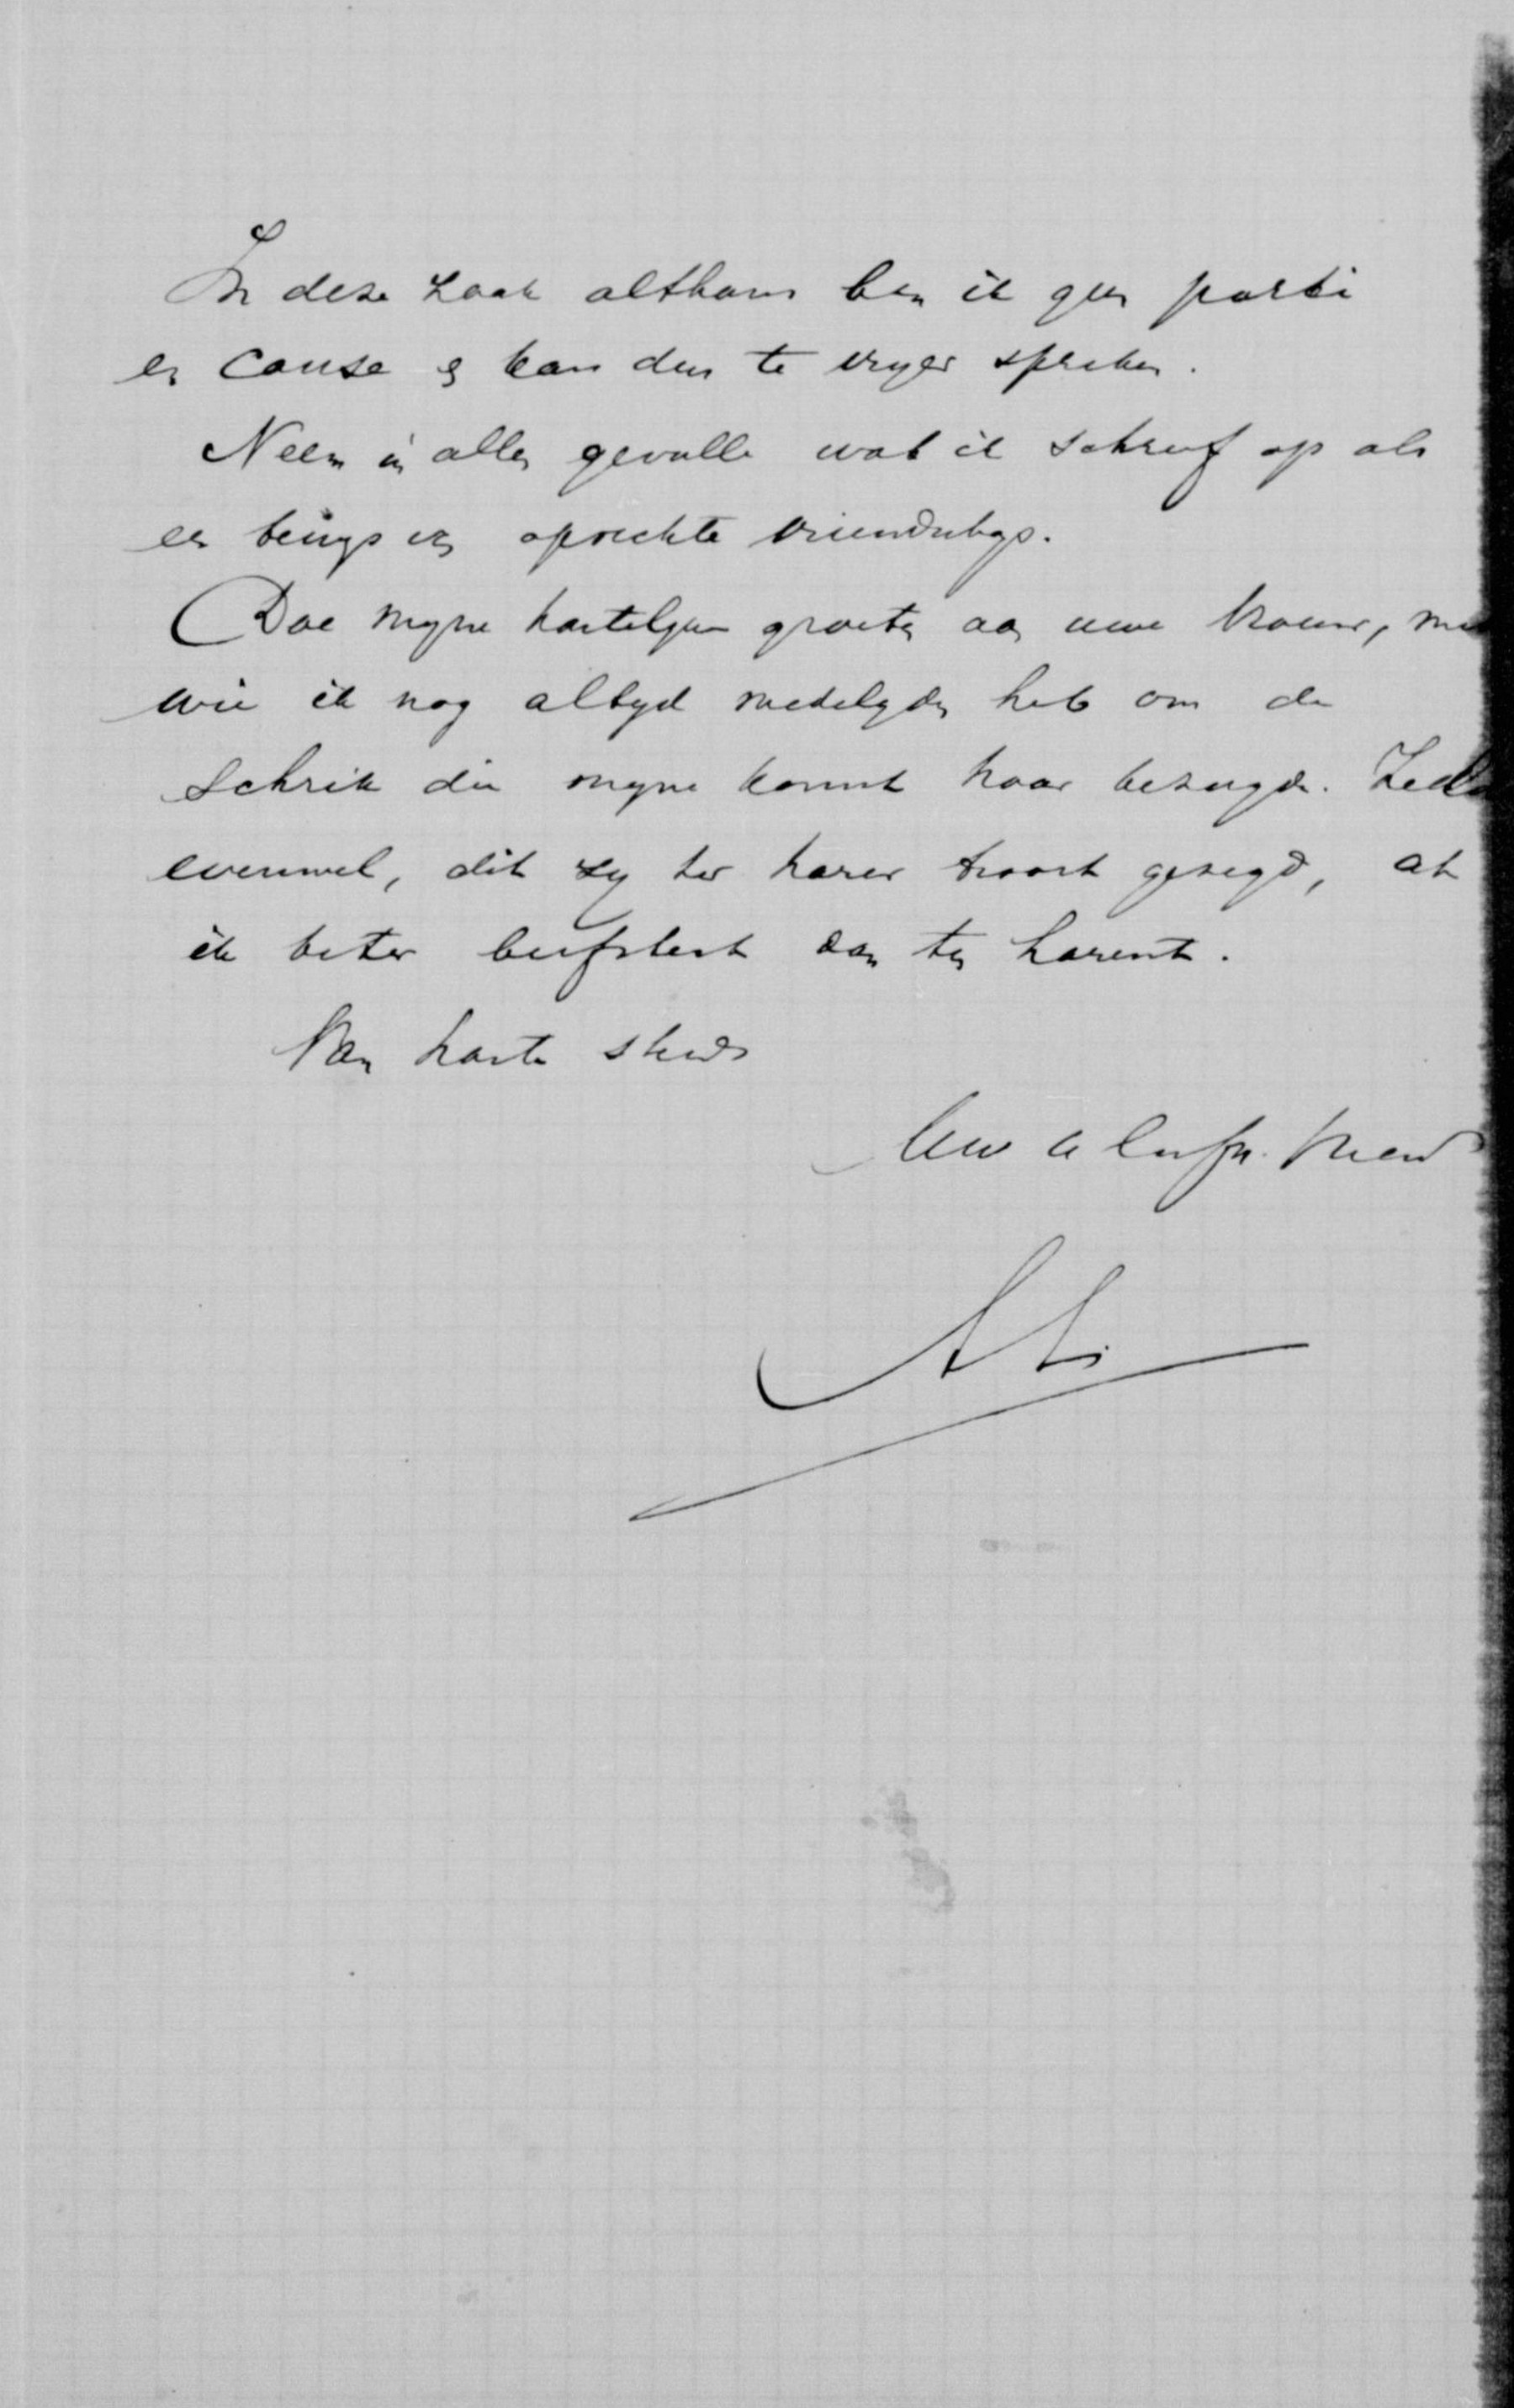 In deze zaak althans ben ik geen partie
en cause & kan des te vryer spreken.
Neem in allen gevalle wat ik schreef op als
een bewys van oprechte vriendschap.
Doe myne hartelyke groeten aan uwe vrouw, met
wie ik nog altyd medelyden heb om de
schrik die myne komst haar bezorgde. Zedert
evenwel, dit zy ter harer troost gezegd, at
ik beter biefstuk dan ten harent.
Van harte steeds
Uw vriend